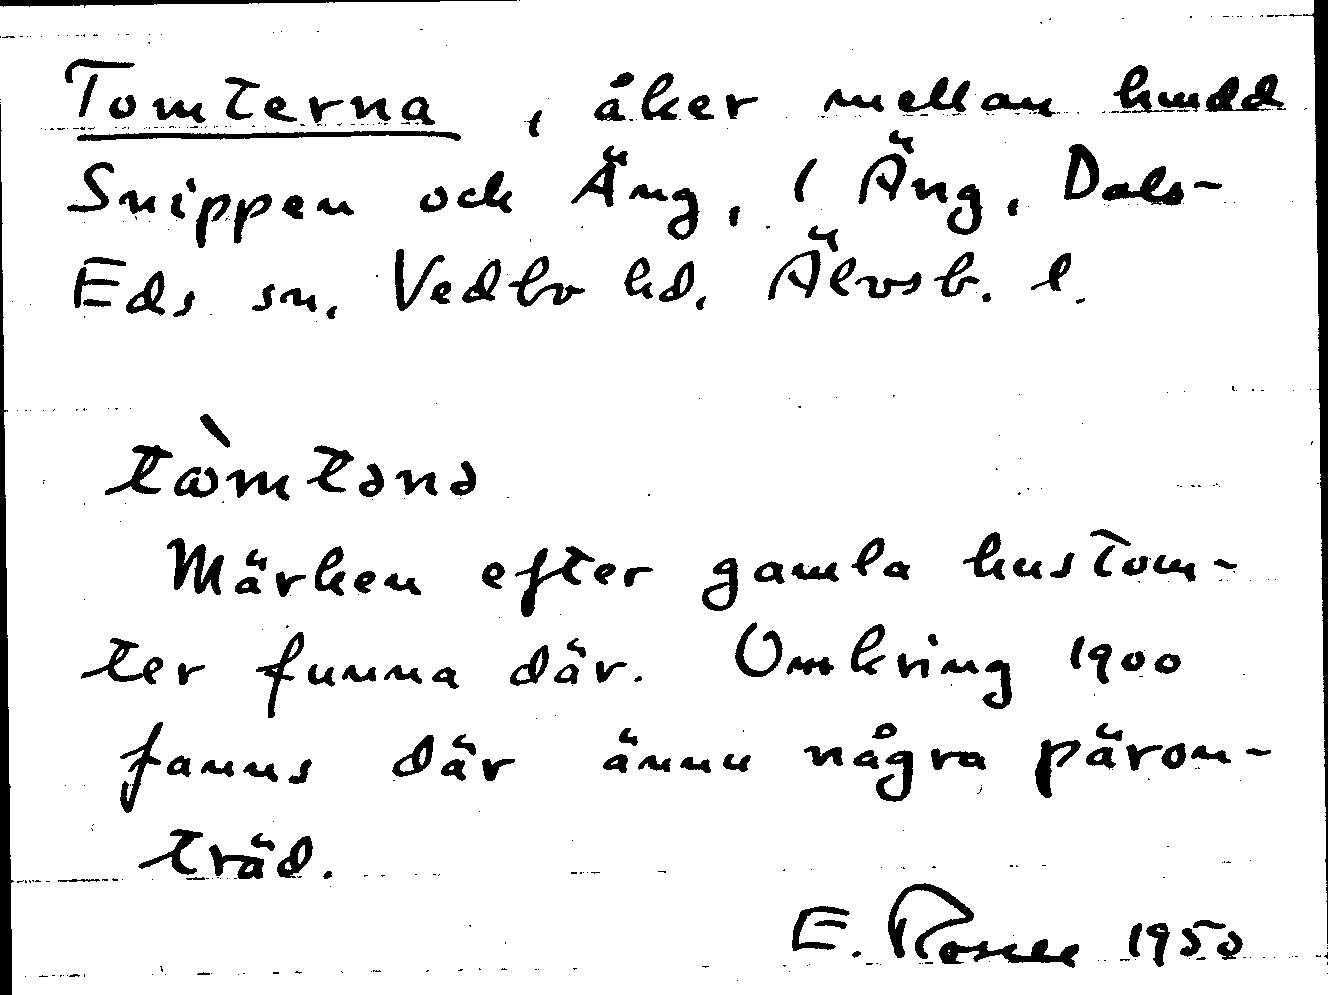 Tomterna, åker mellan hmdd
Snippen och Äng, i Äng, Dals-
Eds sn. Vedbo hd. Älvsb. l.
tòmtənə
Märken efter gamla hustom-
ter funna där. Omkring 1900
fanns där ännu några päron-
träd.
E. 1950